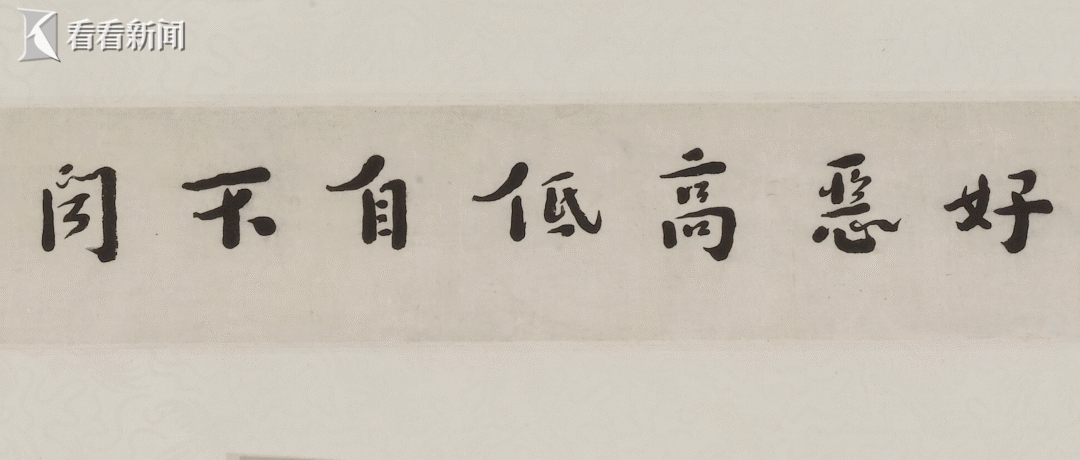 看看新闻
好惡高低自不